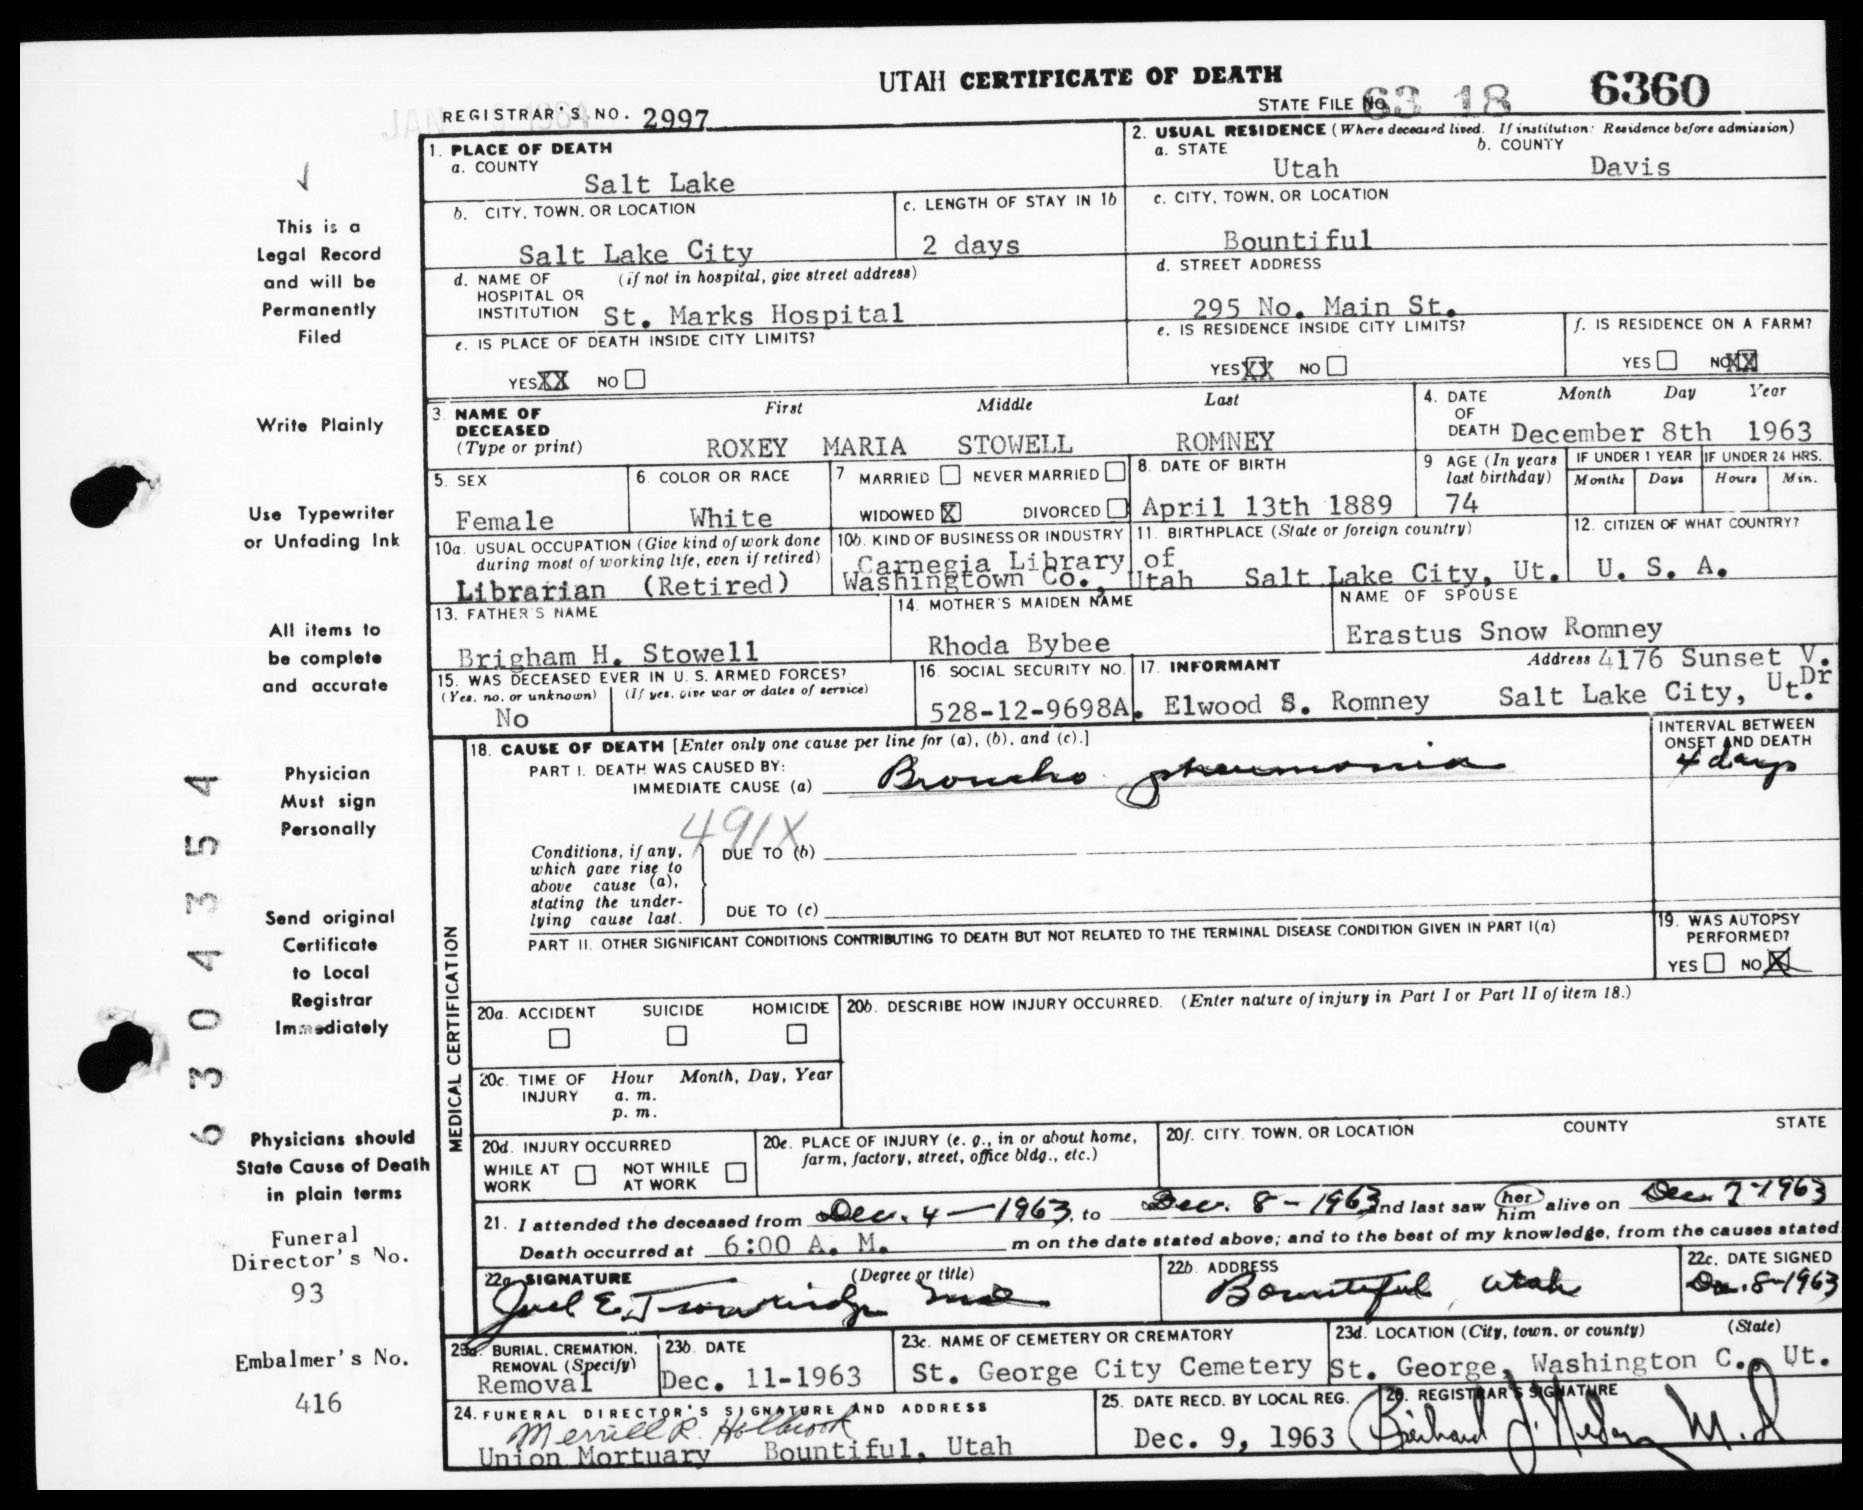 UTAH CERTIFICATE OF DEATH
STATE FILE No. 63 18 6360
REGISTRAR'S NO. 2997
1. PLACE OF DEATH
a. COUNTY
Salt Lake
2. USUAL RESIDENCE (Where deceased lived. If institution: Residence before admission)
a. STATE
Utah
b. COUNTY
Davis
b. CITY, TOWN, OR LOCATION
Salt Lake City
c. LENGTH OF STAY IN 1b
2 days
c. CITY, TOWN, OR LOCATION
Bountiful
d. NAME OF HOSPITAL OR INSTITUTION (if not in hospital, give street address)
St. Marks Hospital
d. STREET ADDRESS
295 No. Main St.
e. IS PLACE OF DEATH INSIDE CITY LIMITS?
YES XX NO
e. IS RESIDENCE INSIDE CITY LIMITS?
YES XX NO
f. IS RESIDENCE ON A FARM?
YES NO XX
3. NAME OF DECEASED (Type or print)
First Middle Last
ROXEY MARIA STOWELL ROMNEY
4. DATE OF DEATH Month Day Year
December 8th 1963
5. SEX
Female
6. COLOR OR RACE
White
7 MARRIED NEVER MARRIED
WIDOWED X DIVORCED
8. DATE OF BIRTH
April 13th 1889
9 AGE (In years last birthday)
74
IF UNDER 1 YEAR IF UNDER 24 HRS.
Months Days Hours Min.
10a. USUAL OCCUPATION (Give kind of work done during most of working life, even if retired)
Librarian (Retired)
10b. KIND OF BUSINESS OR INDUSTRY
Carnegia Library of
Washingtown Co., Utah
11. BIRTHPLACE (State or foreign country)
Salt Lake City, Ut.
12. CITIZEN OF WHAT COUNTRY?
U. S. A.
13. FATHER'S NAME
Brigham H. Stowell
14. MOTHER'S MAIDEN NAME
Rhoda Bybee
NAME OF SPOUSE
Erastus Snow Romney
15. WAS DECEASED EVER IN U. S. ARMED FORCES?
(Yes, no, or unknown) (If yes, give war or dates of service)
No
16. SOCIAL SECURITY NO.
528-12-9698A.
17. INFORMANT
Elwood S. Romney
Address 4176 Sunset V. Dr
Salt Lake City, Ut.
MEDICAL CERTIFICATION
18. CAUSE OF DEATH [Enter only one cause per line for (a), (b), and (c).]
PART I. DEATH WAS CAUSED BY:
IMMEDIATE CAUSE (a) Broncho pneumonia
INTERVAL BETWEEN ONSET AND DEATH
4 days
491X
Conditions, if any, which gave rise to above cause (a), stating the underlying cause last.
DUE TO (b)
DUE TO (c)
PART II. OTHER SIGNIFICANT CONDITIONS CONTRIBUTING TO DEATH BUT NOT RELATED TO THE TERMINAL DISEASE CONDITION GIVEN IN PART I(a)
19. WAS AUTOPSY PERFORMED?
YES NO X
20a. ACCIDENT SUICIDE HOMICIDE
20b. DESCRIBE HOW INJURY OCCURRED. (Enter nature of injury in Part I or Part II of item 18.)
20c. TIME OF INJURY Hour Month, Day, Year
a. m.
p. m.
20d. INJURY OCCURRED
WHILE AT WORK NOT WHILE AT WORK
20e. PLACE OF INJURY (e. g., in or about home, farm, factory, street, office bldg., etc.)
20f. CITY, TOWN, OR LOCATION COUNTY STATE
21. I attended the deceased from Dec. 4 - 1963, to Dec. 8 - 1963 and last saw her him alive on Dec. 7-1963
Death occurred at 6:00 A. M. m on the date stated above; and to the best of my knowledge, from the causes stated
22a. SIGNATURE (Degree or title)
Joel E.
22b. ADDRESS
Bountiful, Utah
22c. DATE SIGNED
Dec. 8-1963
23a. BURIAL, CREMATION, REMOVAL (Specify)
Removal
23b. DATE
Dec. 11-1963
23c. NAME OF CEMETERY OR CREMATORY
St. George City Cemetery
23d. LOCATION (City, town, or county) (State)
St. George, Washington C.. Ut.
24. FUNERAL DIRECTOR'S SIGNATURE AND ADDRESS
Merrill R. Holbrook
Union Mortuary Bountiful, Utah
25. DATE RECD. BY LOCAL REG.
Dec. 9, 1963
26. REGISTRAR'S SIGNATURE
M.D
This is a
Legal Record
and will be
Permanently
Filed
Write Plainly
Use Typewriter
or Unfading Ink
All items to
be complete
and accurate
Physician
Must sign
Personally
Send original
Certificate
to Local
Registrar
Immediately
Physicians should
State Cause of Death
in plain terms
Funeral
Director's No.
93
Embalmer's No.
416
6304354